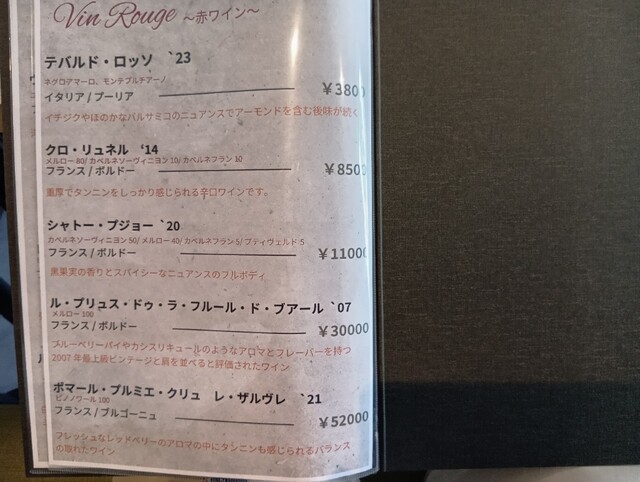 Vin Rouge ～赤ワイン～
テバルド・ロッソ `23
ネグロアマーロ、モンテプルチアーノ
イタリア / プーリア ￥3800
イチジクやほのかなバルサミコのニュアンスでアーモンドを含む後味が続く
クロ・リュネル ‘14
メルロー 80/ カベルネソーヴィニヨン 10/ カベルネフラン 10
フランス / ボルドー ￥8500
重厚でタンニンをしっかり感じられる辛口ワインです。
シャトー・プジョー `20
カベルネソーヴィニヨン 50/ メルロー 40/ カベルネフラン 5/ プティヴェルド 5
フランス / ボルドー ￥11000
黒果実の香りとスパイシーなニュアンスのフルボディ
ル・プリュス・ドゥ・ラ・フルール・ド・ブアール `07
メルロー 100
フランス / ボルドー ￥30000
ブルーベリーパイやカシスリキュールのようなアロマとフレーバーを持つ
2007 年最上級ビンテージと肩を並べると評価されたワイン
ポマール・プルミエ・クリュ レ・ザルヴレ `21
ピノノワール 100
フランス / ブルゴーニュ ￥52000
フレッシュなレッドベリーのアロマの中にタンニンも感じられるバランス
の取れたワイン